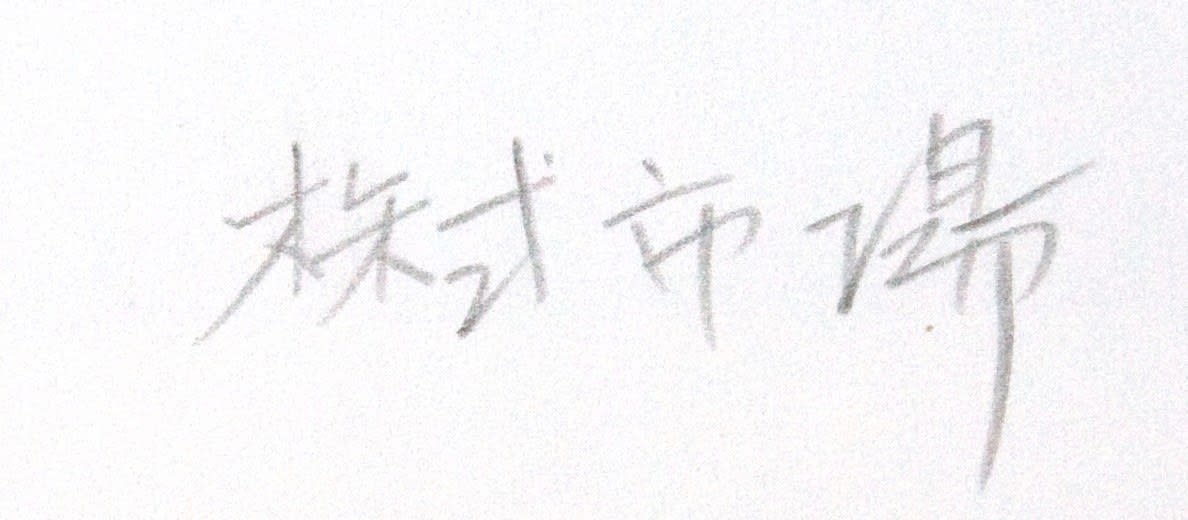 株式市場